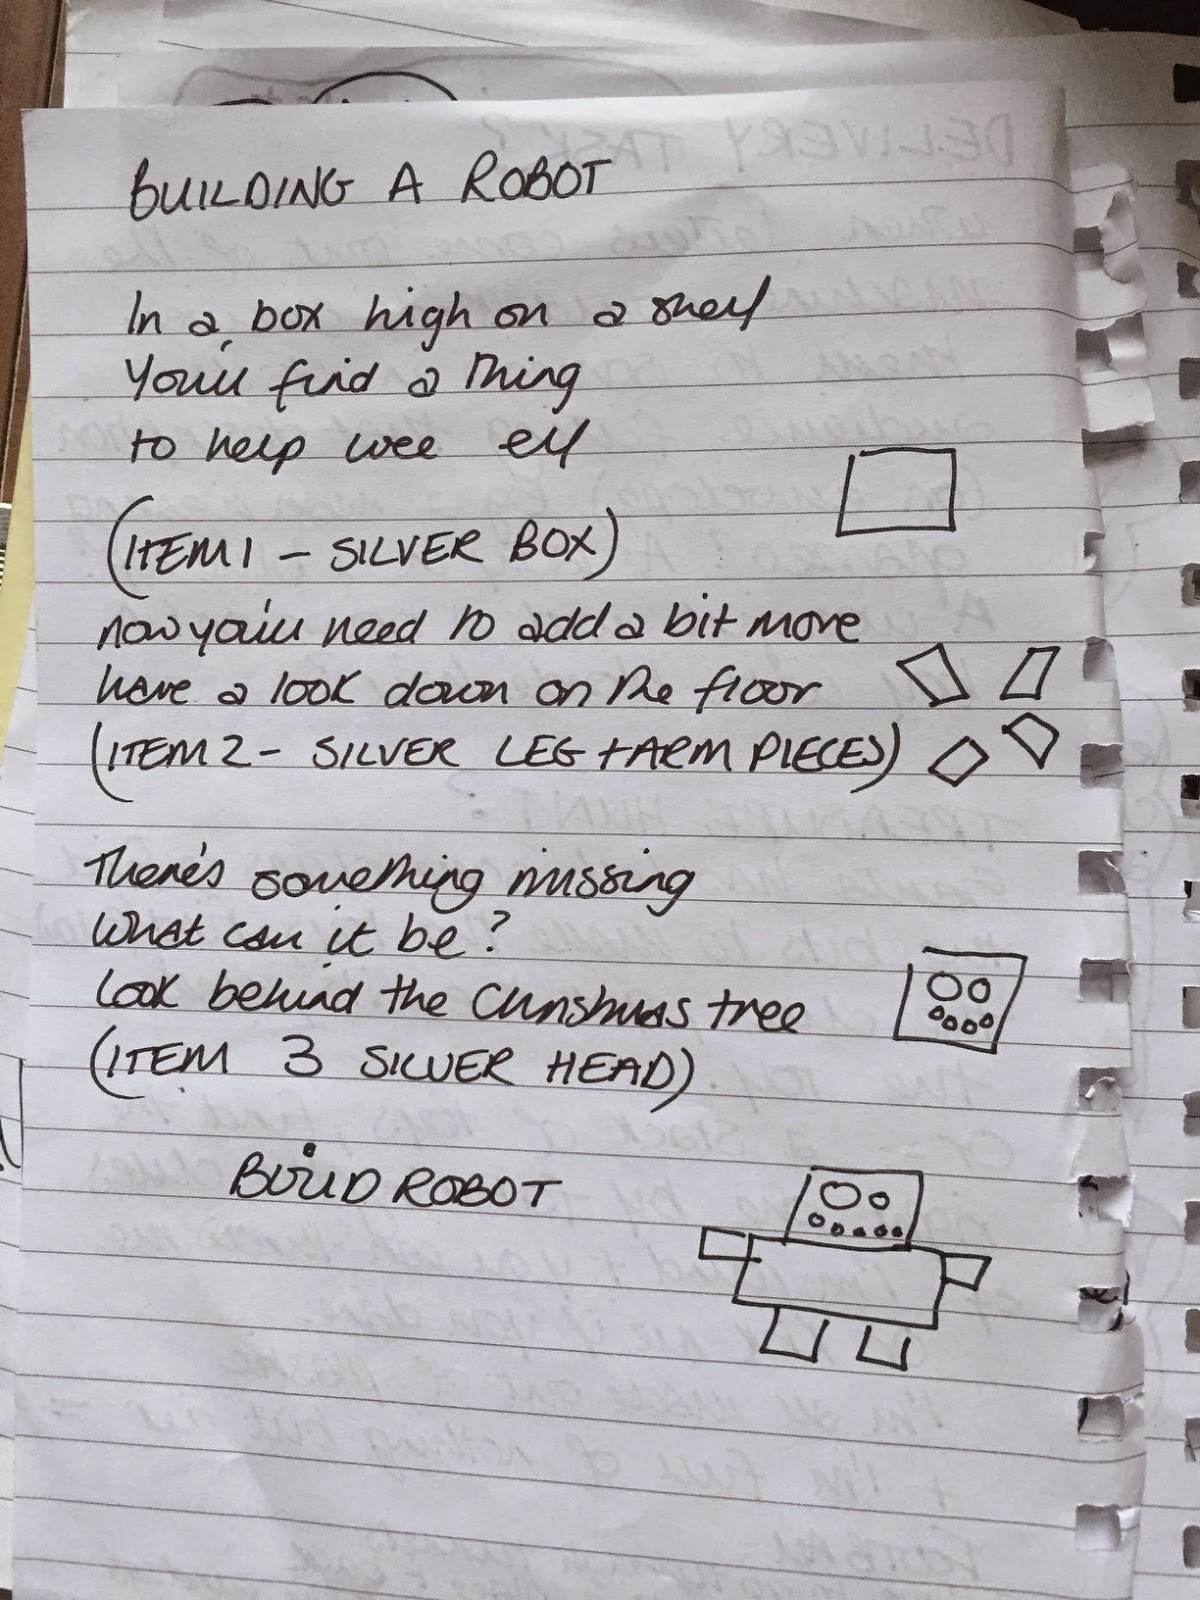 BUILDING A ROBOT
In a box high on a shelf
You'll find a thing
to help wee elf
(ITEM 1 – SILVER BOX)
now you'll need to add a bit more
have a look down on the floor
(ITEM 2 – SILVER LEG + ARM PIECES)
There's something missing
What can it be?
Look behind the Christmas tree
(ITEM 3 SILVER HEAD)
BUILD ROBOT